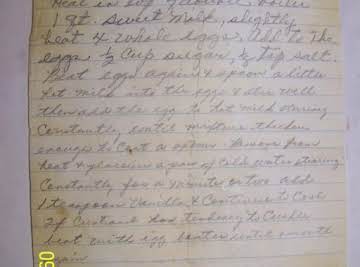 Heat in top double boiler
1 qt. sweet milk, slightly
beat 4 whole eggs, add to the
eggs ½ cup sugar, ¼ tsp salt.
Beat eggs again & spoon a little
hot milk into the eggs & stir well
then add the egg to hot milk stirring
constantly, until mixture thickens
enough to coat a spoon. Remove from
heat & place in a pan of cold water stirring
constantly for a minute or two add
1 teaspoon Vanilla & continue to cool
If custard has tendency to curdle,
beat with egg beater until smooth
again.
60